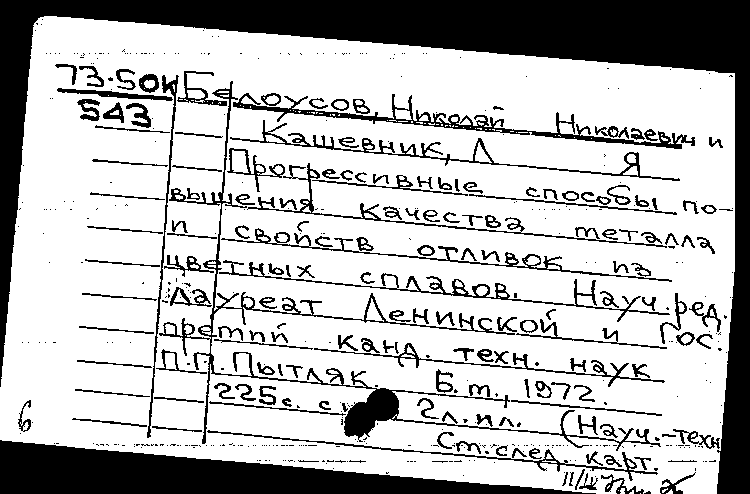 73-50к Белоусов, Николай Николаевич и
543
Кашевник, Л Я
Прогрессивные способы по-
вышения качества металла
и свойств отливок из
цветных сплавов. Науч. ред.
лауреат Ленинской и Гос.
премий канд. техн. наук
П.П. Пытляк. Б.м., 1972.
225с. с 2л. ил. (Науч.-техн
Ст. след. карт.
6